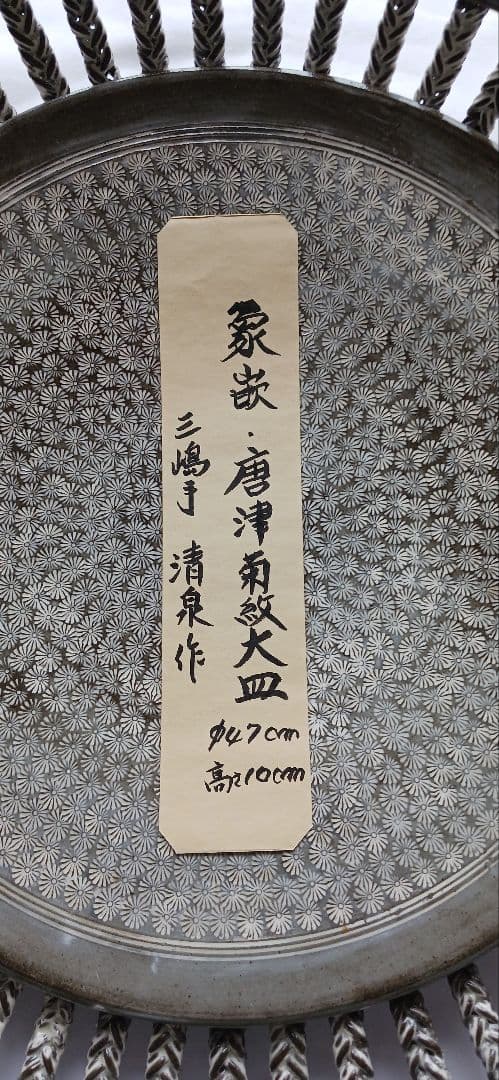 象嵌・唐津菊紋大皿
φ47cm
高さ10cm
三嶋手 清泉作